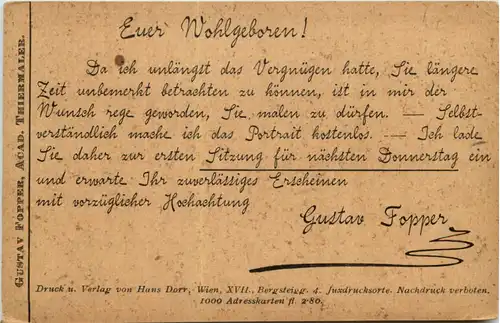 Euer Wohlgeboren!
Da ich unlängst das Vergnügen hatte, Sie längere
Zeit unbemerkt betrachten zu können, ist in mir der
Wunsch rege geworden, Sie malen zu dürfen. — Selbst-
verständlich mache ich das Portrait kostenlos. — Ich lade
Sie daher zur ersten Sitzung für nächsten Donnerstag ein
und erwarte Ihr zuverlässiges Erscheinen
mit vorzüglicher Hochachtung
Gustav Fopper
Druck u. Verlag von Hans Dorr, Wien, XVII., Bergsteigg. 4. Juxdrucksorte. Nachdruck verboten.
1000 Adresskarten fl. 2·80.
GUSTAV FOPPER, ACAD. THIERMALER.